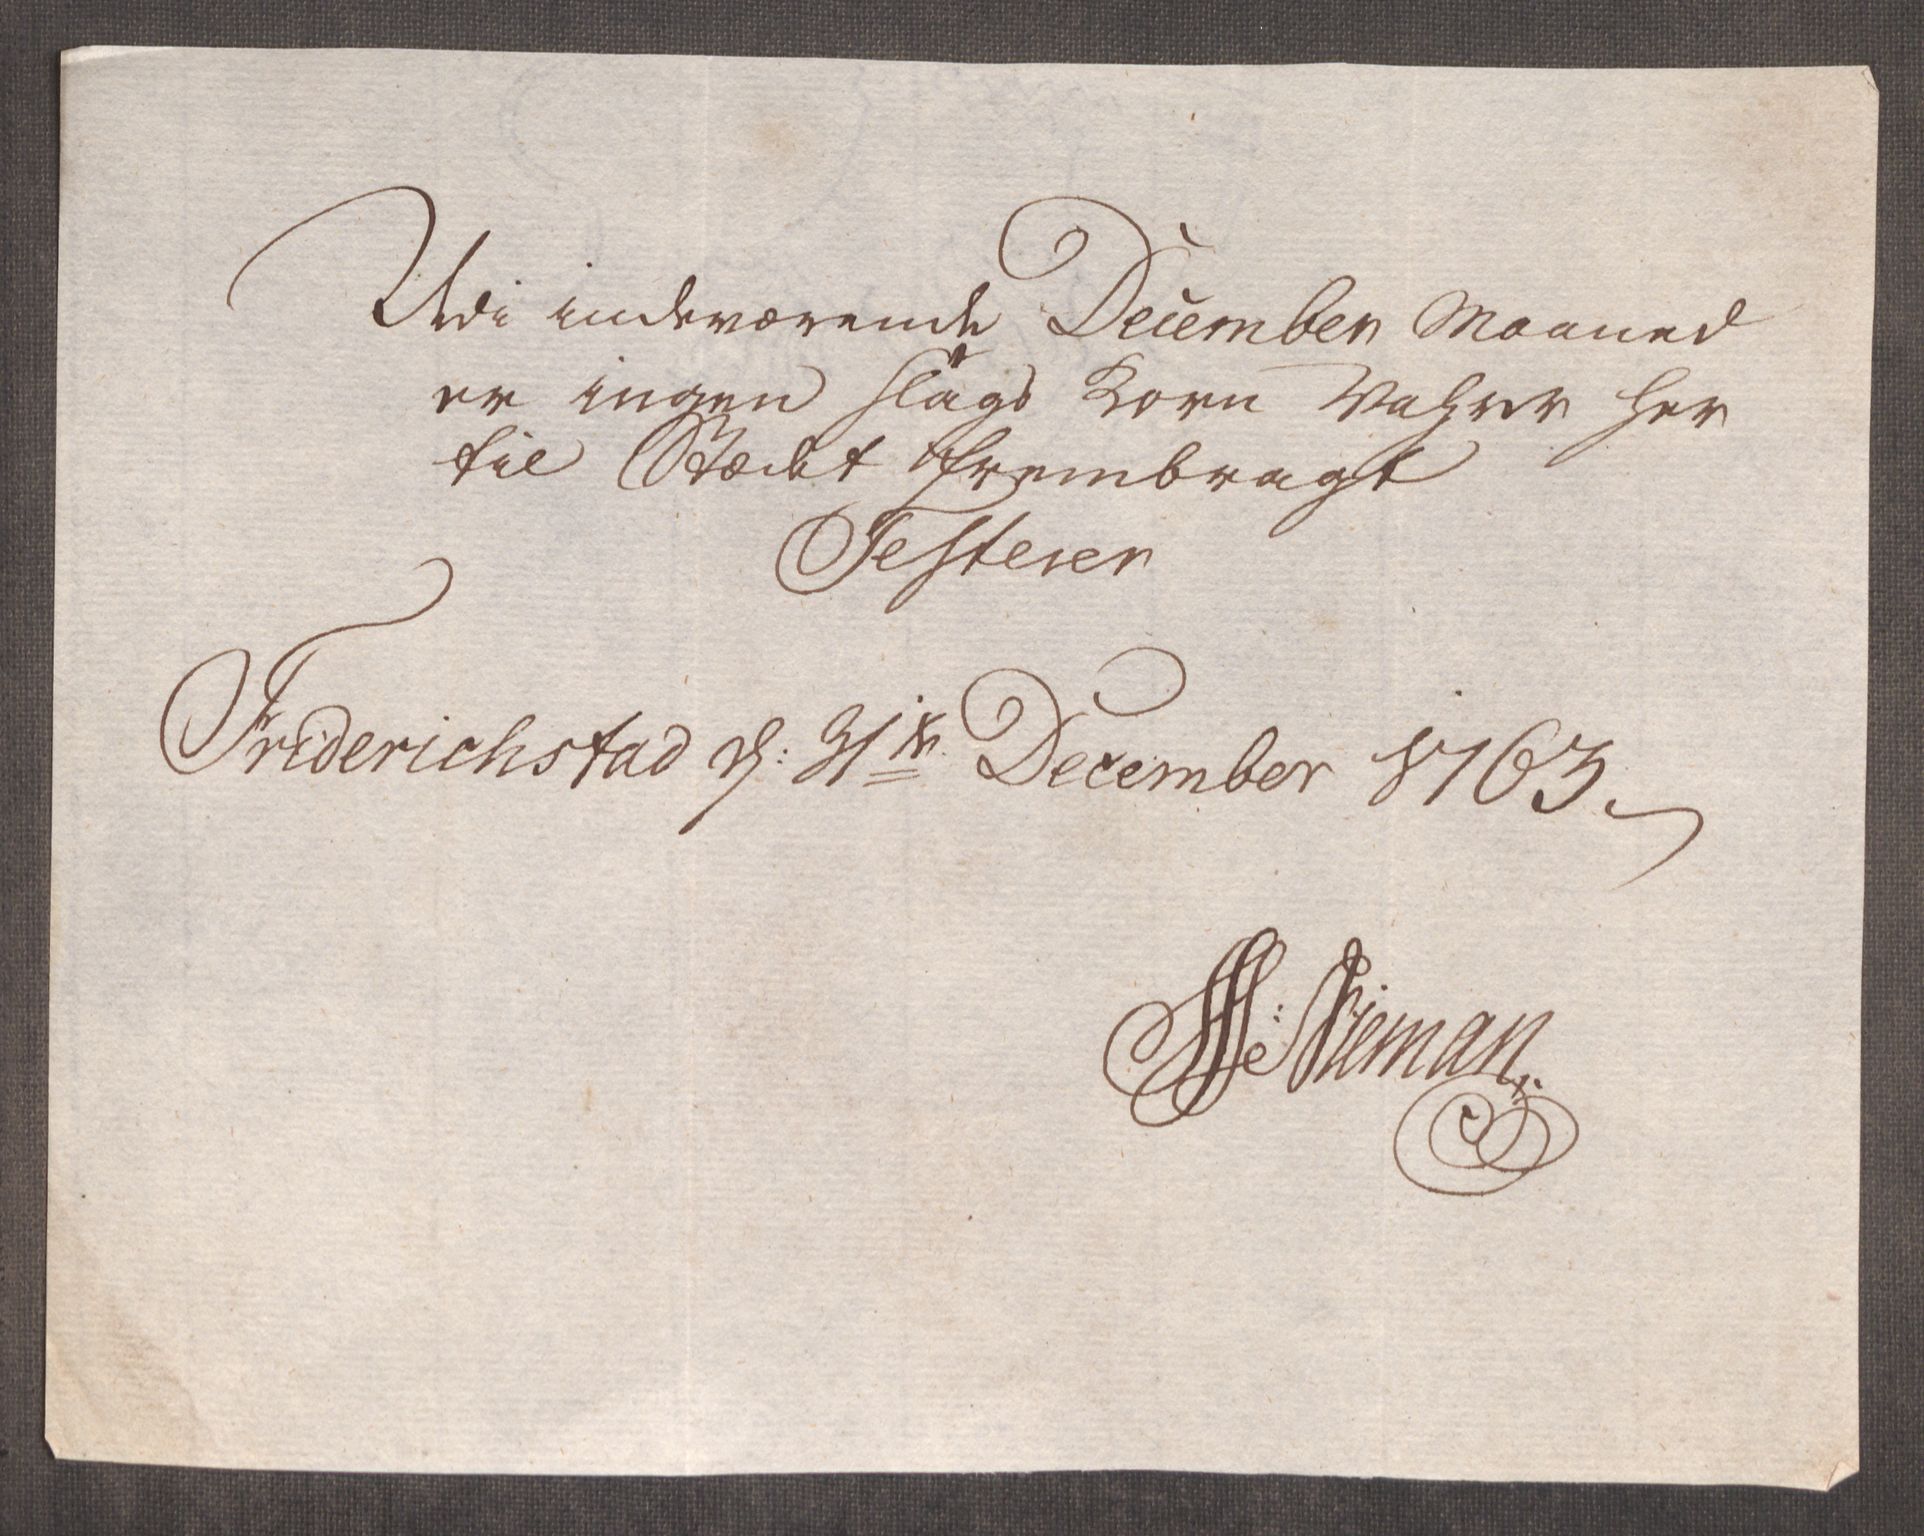 Udi indeværende December Maaned
er ingen slags Korn Vahrer her
til Stædet frembragt
Testerer
Friderichstad d: 31te December 1763.
Nieman